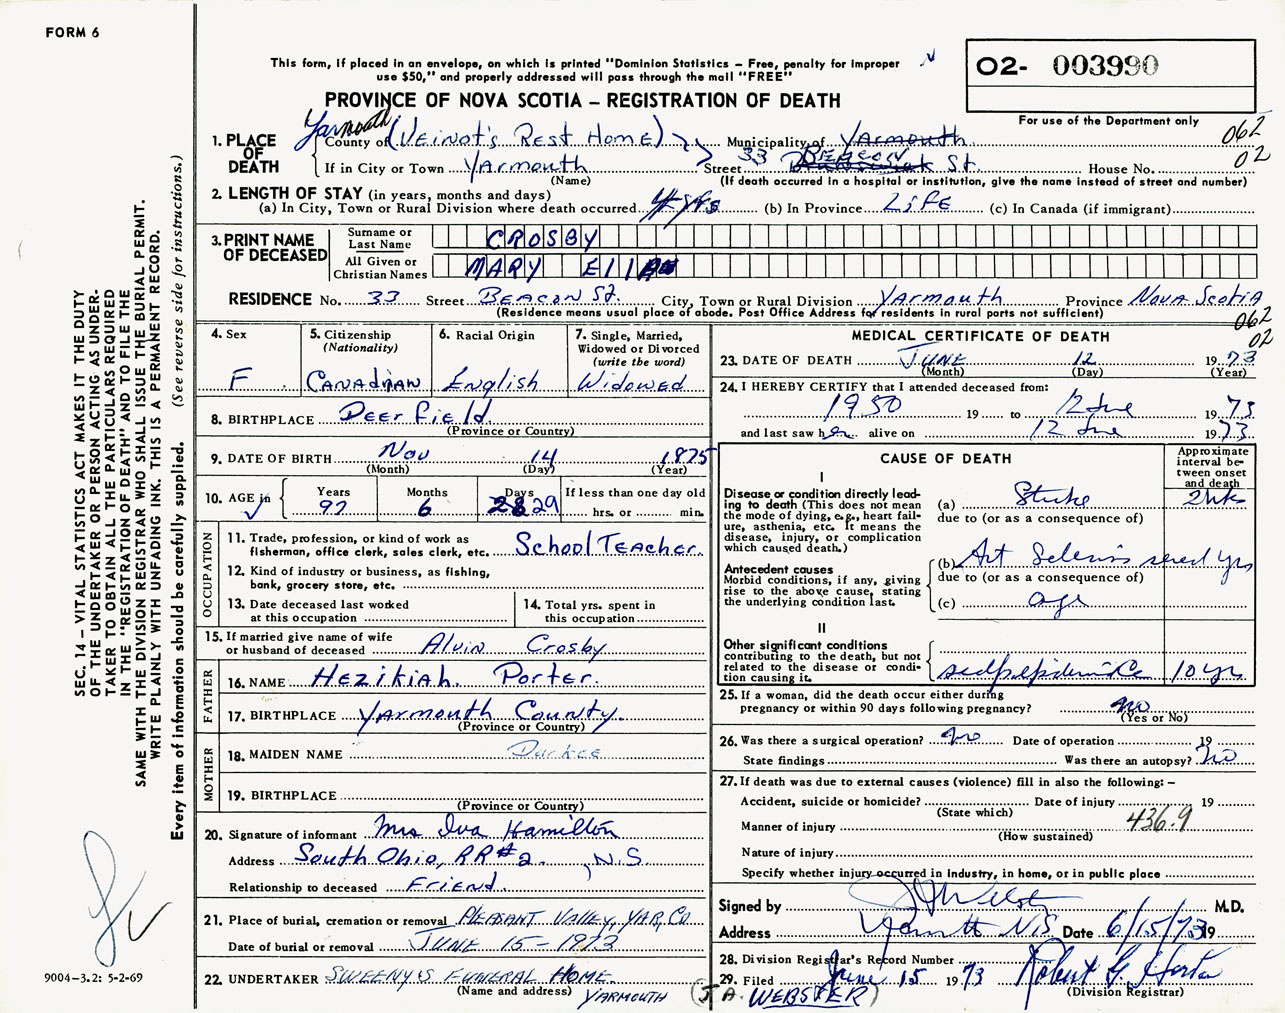 FORM 6
This form, if placed in an envelope, on which is printed "Dominion Statistics – Free, penalty for improper
use $50," and properly addressed will pass through the mail "FREE"
O2- 003990
PROVINCE OF NOVA SCOTIA – REGISTRATION OF DEATH
For use of the Department only
062
02
1. PLACE OF DEATH
County of Yarmouth (VEINOT'S REST HOME) Municipality of Yarmouth
If in City or Town YARMOUTH Street 33 BEACON St. House No.
(Name) (If death occurred in a hospital or institution, give the name instead of street and number)
2. LENGTH OF STAY (in years, months and days)
(a) In City, Town or Rural Division where death occurred 4 yrs (b) In Province LIFE (c) In Canada (if immigrant)
3. PRINT NAME OF DECEASED
Surname or Last Name CROSBY
All Given or Christian Names MARY Ella
RESIDENCE No. 33 Street BEACON St. City, Town or Rural Division YARMOUTH Province NOVA SCOTIA
(Residence means usual place of abode. Post Office Address for residents in rural parts not sufficient)
062
02
4. Sex F
5. Citizenship (Nationality) CANADIAN
6. Racial Origin English
7. Single, Married, Widowed or Divorced (write the word) Widowed
8. BIRTHPLACE Deerfield
(Province or Country)
9. DATE OF BIRTH Nov 14 1875
(Month) (Day) (Year)
10. AGE in Years 97 Months 6 Days 28 29 If less than one day old hrs. or min.
OCCUPATION
11. Trade, profession, or kind of work as
fisherman, office clerk, sales clerk, etc. School Teacher
12. Kind of industry or business, as fishing,
bank, grocery store, etc.
13. Date deceased last worked
at this occupation
14. Total yrs. spent in
this occupation
15. If married give name of wife
or husband of deceased Alvin Crosby
FATHER
16. NAME Hezikiah Porter
17. BIRTHPLACE Yarmouth County
(Province or Country)
MOTHER
18. MAIDEN NAME Durkee
19. BIRTHPLACE
(Province or Country)
20. Signature of informant Mrs Iva Hamilton
Address South Ohio, RR#2, N.S.
Relationship to deceased Friend
21. Place of burial, cremation or removal PLEASANT VALLEY, YAR, CO
Date of burial or removal JUNE 15 – 1973
22. UNDERTAKER SWEENY'S FUNERAL HOME
(Name and address) YARMOUTH
MEDICAL CERTIFICATE OF DEATH
23. DATE OF DEATH JUNE 12 1973
(Month) (Day) (Year)
24. I HEREBY CERTIFY that I attended deceased from:
1950 19 to 12 June 1973
and last saw her alive on 12 June 1973
CAUSE OF DEATH
Approximate interval between onset and death
I
Disease or condition directly leading to death (This does not mean the mode of dying, e.g., heart failure, asthenia, etc. It means the disease, injury, or complication which caused death.)
(a) Stroke 2 wks
due to (or as a consequence of)
Antecedent causes
Morbid conditions, if any, giving rise to the above cause, stating the underlying condition last.
(b) Art Sclerosis several yrs
due to (or as a consequence of)
(c) age
II
Other significant conditions
contributing to the death, but not related to the disease or condition causing it.
10 yrs
25. If a woman, did the death occur either during
pregnancy or within 90 days following pregnancy? no
(Yes or No)
26. Was there a surgical operation? no Date of operation 19
State findings Was there an autopsy? no
27. If death was due to external causes (violence) fill in also the following: –
Accident, suicide or homicide? Date of injury 19
(State which)
Manner of injury 436.9
(How sustained)
Nature of injury
Specify whether injury occurred in industry, in home, or in public place
Signed by J A Webster M.D.
Address Yarmouth N.S. Date 6/15/73 19
28. Division Registrar's Record Number
29. Filed June 15 1973 Robert G. Horton
(Division Registrar)
(J. A. WEBSTER)
SEC. 14 – VITAL STATISTICS ACT MAKES IT THE DUTY
OF THE UNDERTAKER OR PERSON ACTING AS UNDER-
TAKER TO OBTAIN ALL THE PARTICULARS REQUIRED
IN THE "REGISTRATION OF DEATH" AND TO FILE THE
SAME WITH THE DIVISION REGISTRAR WHO SHALL ISSUE THE BURIAL PERMIT.
WRITE PLAINLY WITH UNFADING INK. THIS IS A PERMANENT RECORD.
Every item of information should be carefully supplied. (See reverse side for instructions.)
9004–3.2: 5-2-69